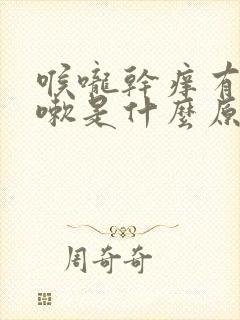 喉嚨幹痒有
嗽是什麼原
周奇奇